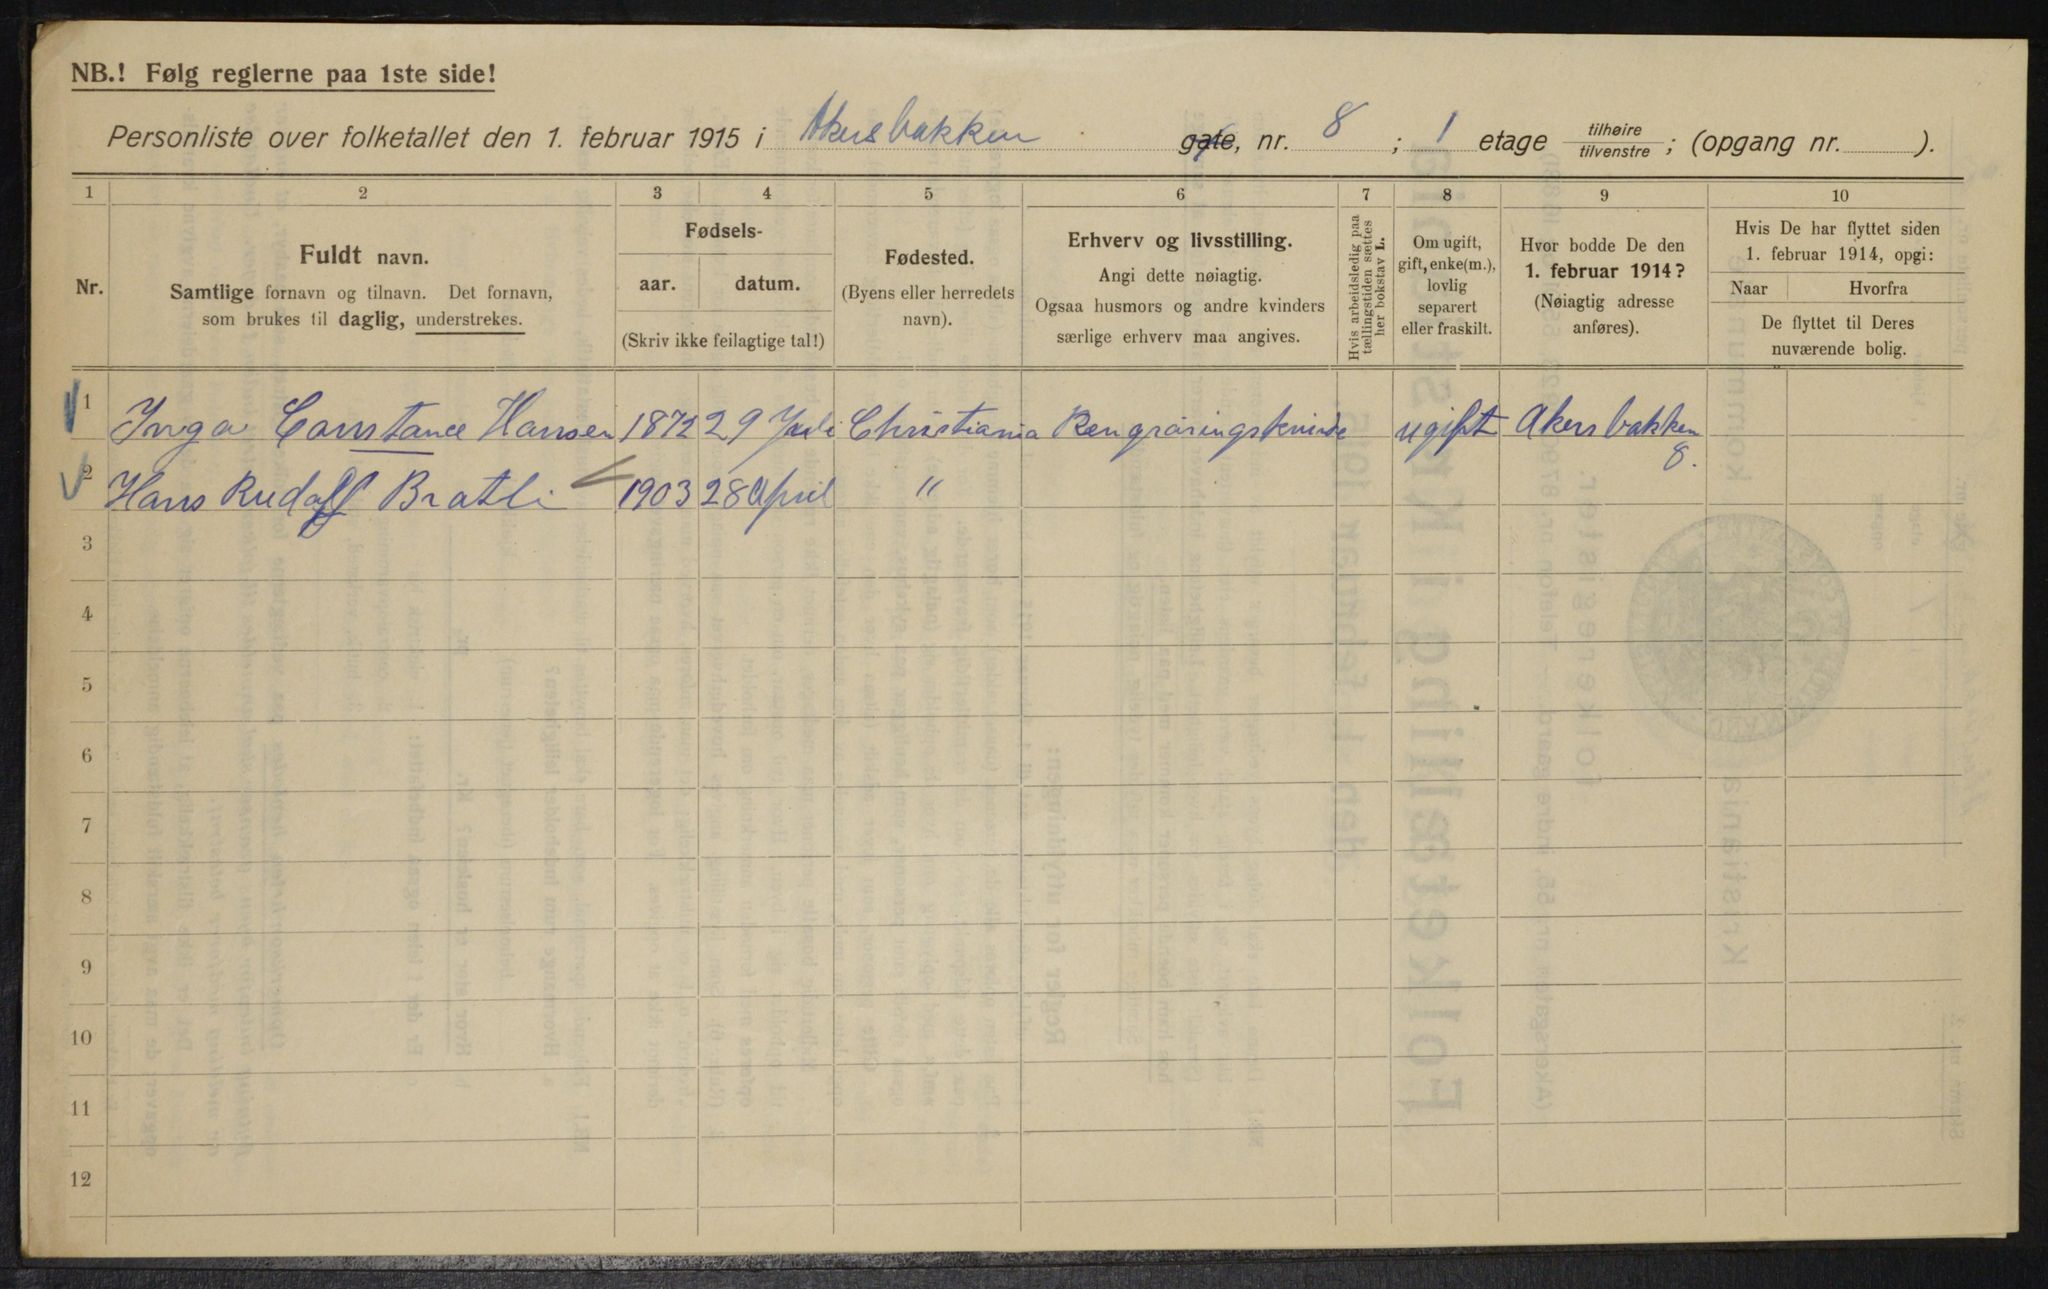 NB.! Følg reglerne paa 1ste side!
Personliste over folketallet den 1. februar 1915 i Akersbakken gate, nr. 8 ; 1 etage tilhøire tilvenstre ; (opgang nr. ).
1 2 3 4 5 6 7 8 9 10
Nr.
Fuldt navn.
Samtlige fornavn og tilnavn. Det fornavn,
som brukes til daglig, understrekes.
Fødsels-
aar. datum.
(Skriv ikke feilagtige tal!)
Fødested.
(Byens eller herredets
navn).
Erhverv og livsstilling.
Angi dette nøiagtig.
Ogsaa husmors og andre kvinders
særlige erhverv maa angives.
Hvis arbeidsledig paa
tællingstiden sættes
her bokstav L.
Om ugift,
gift, enke(m.),
lovlig
separert
eller fraskilt.
Hvor bodde De den
1. februar 1914?
(Nøiagtig adresse
anføres).
Hvis De har flyttet siden
1. februar 1914, opgi:
Naar Hvorfra
De flyttet til Deres
nuværende bolig.
1 Inga Constance Hansen 1872 29 Juli Christiania Rengjøringskvinde ugift Akersbakken
8.
2 Hans Rudolf Bratli 1903 28 April "
3
4
5
6
7
8
9
10
11
12